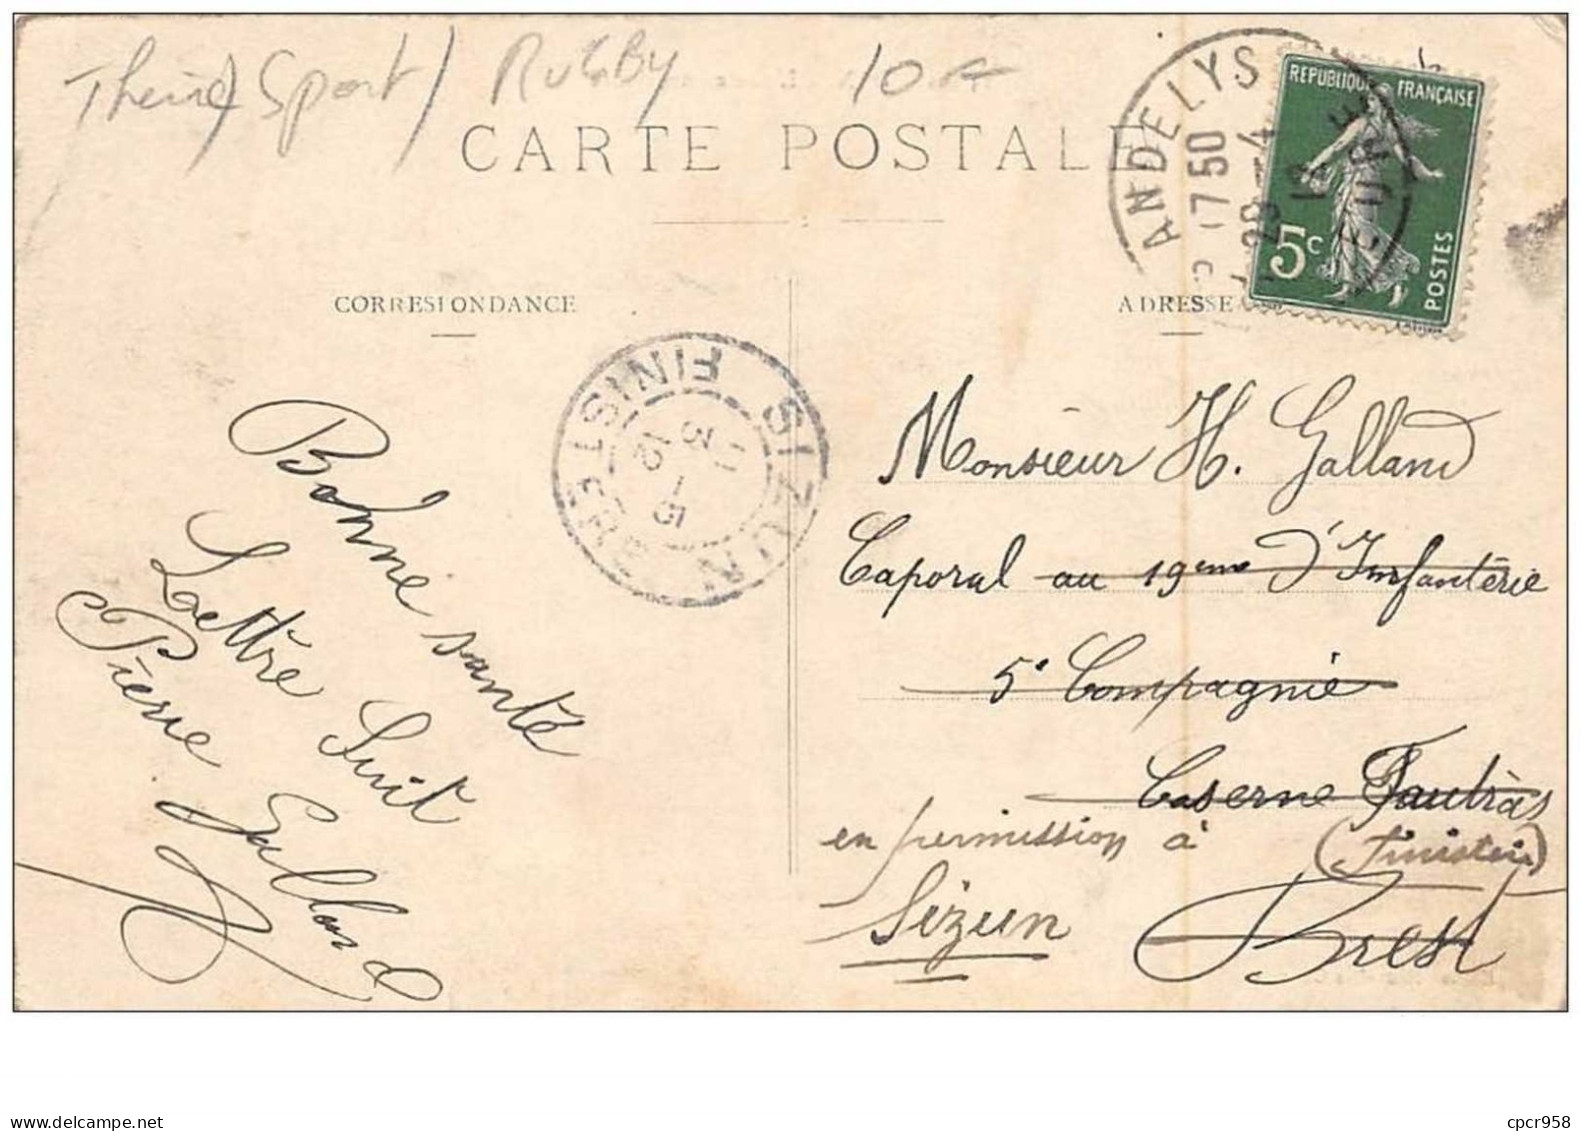 Thème / Sport / Rugby 10 F
CARTE POSTALE
RÉPUBLIQUE FRANÇAISE
5c
POSTES
ANDELYS
EURE
1750
29-4
12
CORRESPONDANCE
ADRESSE
SIZUN
FINISTÈRE
1-5
12
Bonne santé
Laettre Suit
Pierre Galland
Monsieur H. Galland
Caporal au 19eme d'Infantérie
5e Compagnie
Caserne Fautras
en permission à (Finistère)
Sizun
Brest
cpcr958